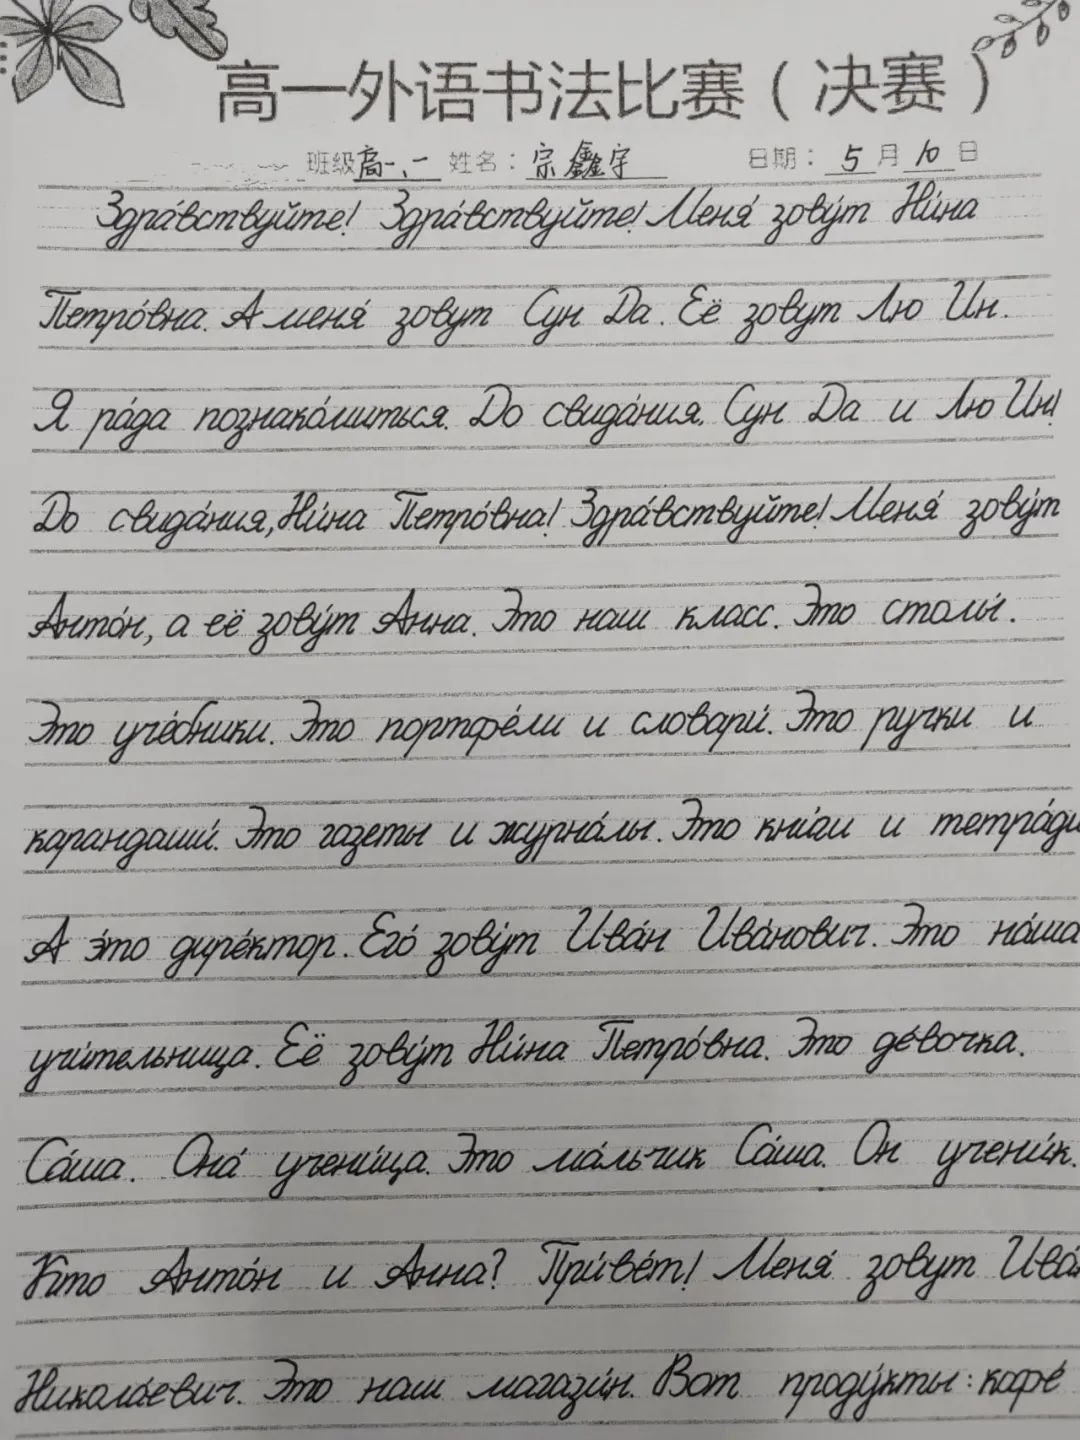 高一外语书法比赛（决赛）
班级高一、二 姓名：宗鑫宇 日期：5月10日
Здра́вствуйте! Здра́вствуйте! Меня́ зову́т Ни́на
Петро́вна. А меня́ зовут Сун Да. Её зовут Лю Ин.
Я ра́да познако́миться. До свида́ния, Сун Да и Лю Ин!
До свида́ния, Ни́на Петро́вна! Здра́вствуйте! Меня́ зову́т
Анто́н, а её зову́т Анна. Это наш класс. Это столы́.
Это уче́бники. Это портфе́ли и словари́. Это ручки и
карандаши́. Это газеты и журна́лы. Это кни́ги и тетра́ди
А э́то дире́ктор. Его́ зову́т Ива́н Ива́нович. Это на́ша
учи́тельница. Её зову́т Ни́на Петро́вна. Это де́вочка.
Са́ша. Она́ учени́ца. Это ма́льчик Са́ша. Он учени́к.
Кто Анто́н и Анна? При́ве́т! Меня́ зовут Ива́н
Никола́евич. Это наш магази́н. Вот проду́кты: кофе́